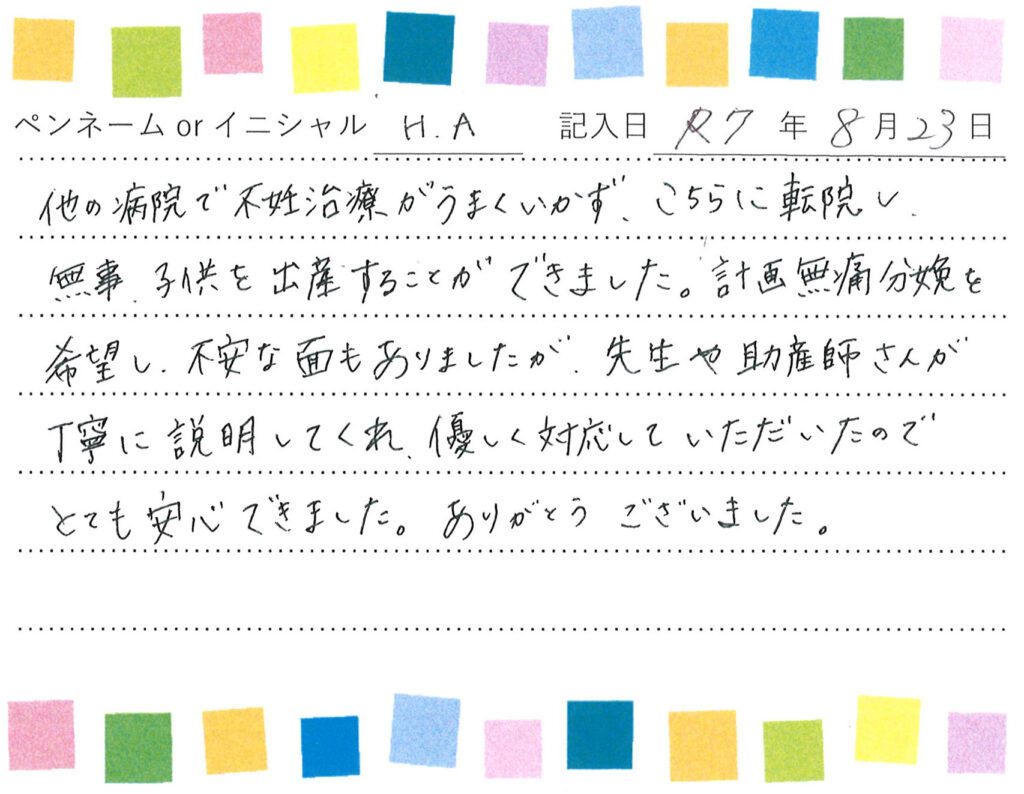 ペンネーム or イニシャル H.A 記入日 R7 年 8 月 23 日
他の病院で不妊治療がうまくいかず、こちらに転院し、
無事、子供を出産することができました。計画無痛分娩を
希望し、不安な面もありましたが、先生や助産師さんが
丁寧に説明してくれ、優しく対応していただいたので
とても安心できました。ありがとうございました。